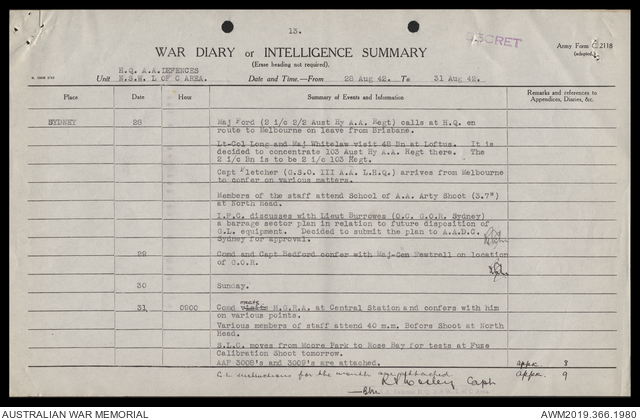 13.
SECRET
WAR DIARY or INTELLIGENCE SUMMARY
(Erase heading not required).
Army Form C.2118
(adapted.)
H.Q. A.A.DEFENCES
Unit N.S.W. L OF C AREA.
Date and Time.—From 28 Aug 42. To 31 Aug 42.
Place Date Hour Summary of Events and Information References and remarks to Appendices, Diaries, &c.
SYDNEY 28 Maj Ford (2 i/c 2/2 Aust Hy A.A. Regt) calls at H.Q. en
route to Melbourne on leave from Brisbane.
Lt-Col Long and Maj Whitelaw visit 48 Bn at Loftus. It is
decided to concentrate 103 Aust Hy A.A. Regt there. The
2 i/c Bn is to be 2 i/c 103 Regt.
Capt Fletcher (G.S.O. III A.A. L.H.Q.) arrives from Melbourne
to confer on various matters.
Members of the staff attend School of A.A. Arty Shoot (3.7")
at North Head.
I.F.C. discusses with Lieut Burrowes (O.C. G.O.R. Sydney)
a barrage sector plan in relation to future disposition of
G.L. equipment. Decided to submit the plan to A.A.D.C.
Sydney for approval.
29 Comd and Capt Bedford confer with Maj-Gen Fewtrell on location
of G.O.R.
30 Sunday.
31 0900 Comd meets M.G.R.A. at Central Station and confers with him
on various points.
Various members of staff attend 40 m.m. Bofors Shoot at North
Head.
S.L.C. moves from Moore Park to Rose Bay for tests at Fuse
Calibration Shoot tomorrow.
AAF 3008's and 3009's are attached. appx. 8
instructions for the month are attached appx. 9
Capt
AUSTRALIAN WAR MEMORIAL
AWM2019.366.1980